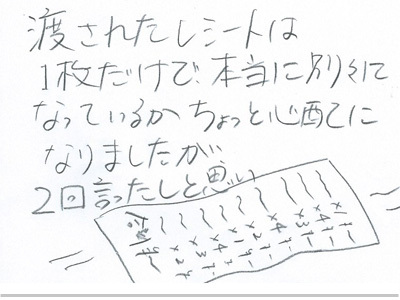 渡されたレシートは
1枚だけで、本当に別々に
なっているかちょっと心配に
なりましたが
2回言ったしと思い